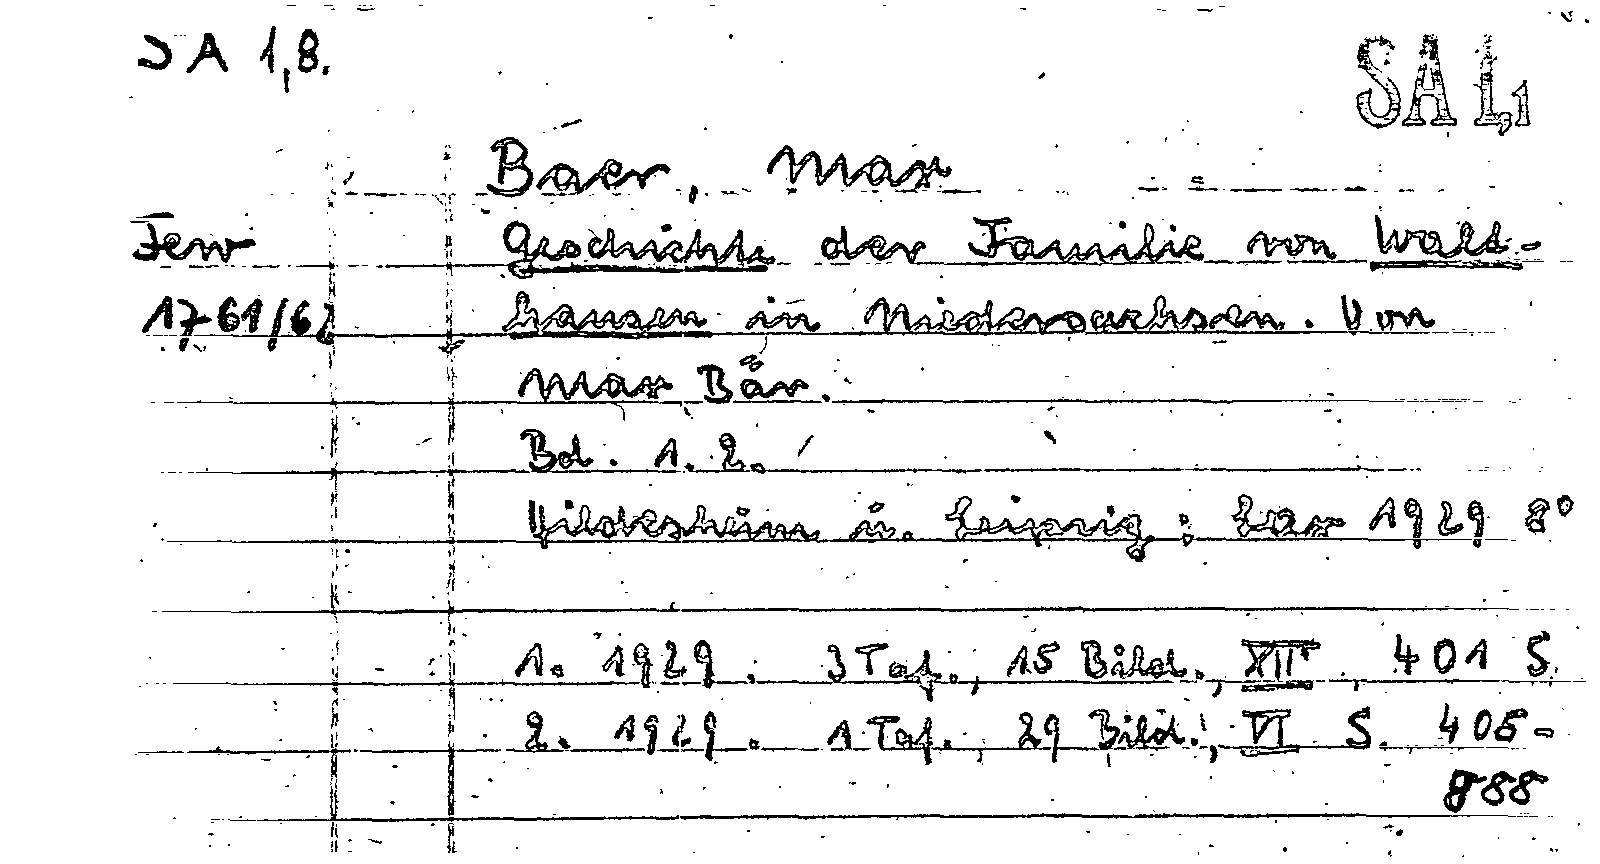 SA 1,8.
SA L,1
Baer, Max
Few
Geschichte der Familie von Walt-
1761/62
hausen in Niedersachsen. Von
Max Bär.
Bd. 1. 2.
Hildesheim u. Leipzig: Lax 1929 8°
1. 1929. 3 Taf., 15 Bild., XII, 401 S.
2. 1929. 1 Taf., 29 Bild., VI S. 405-
988